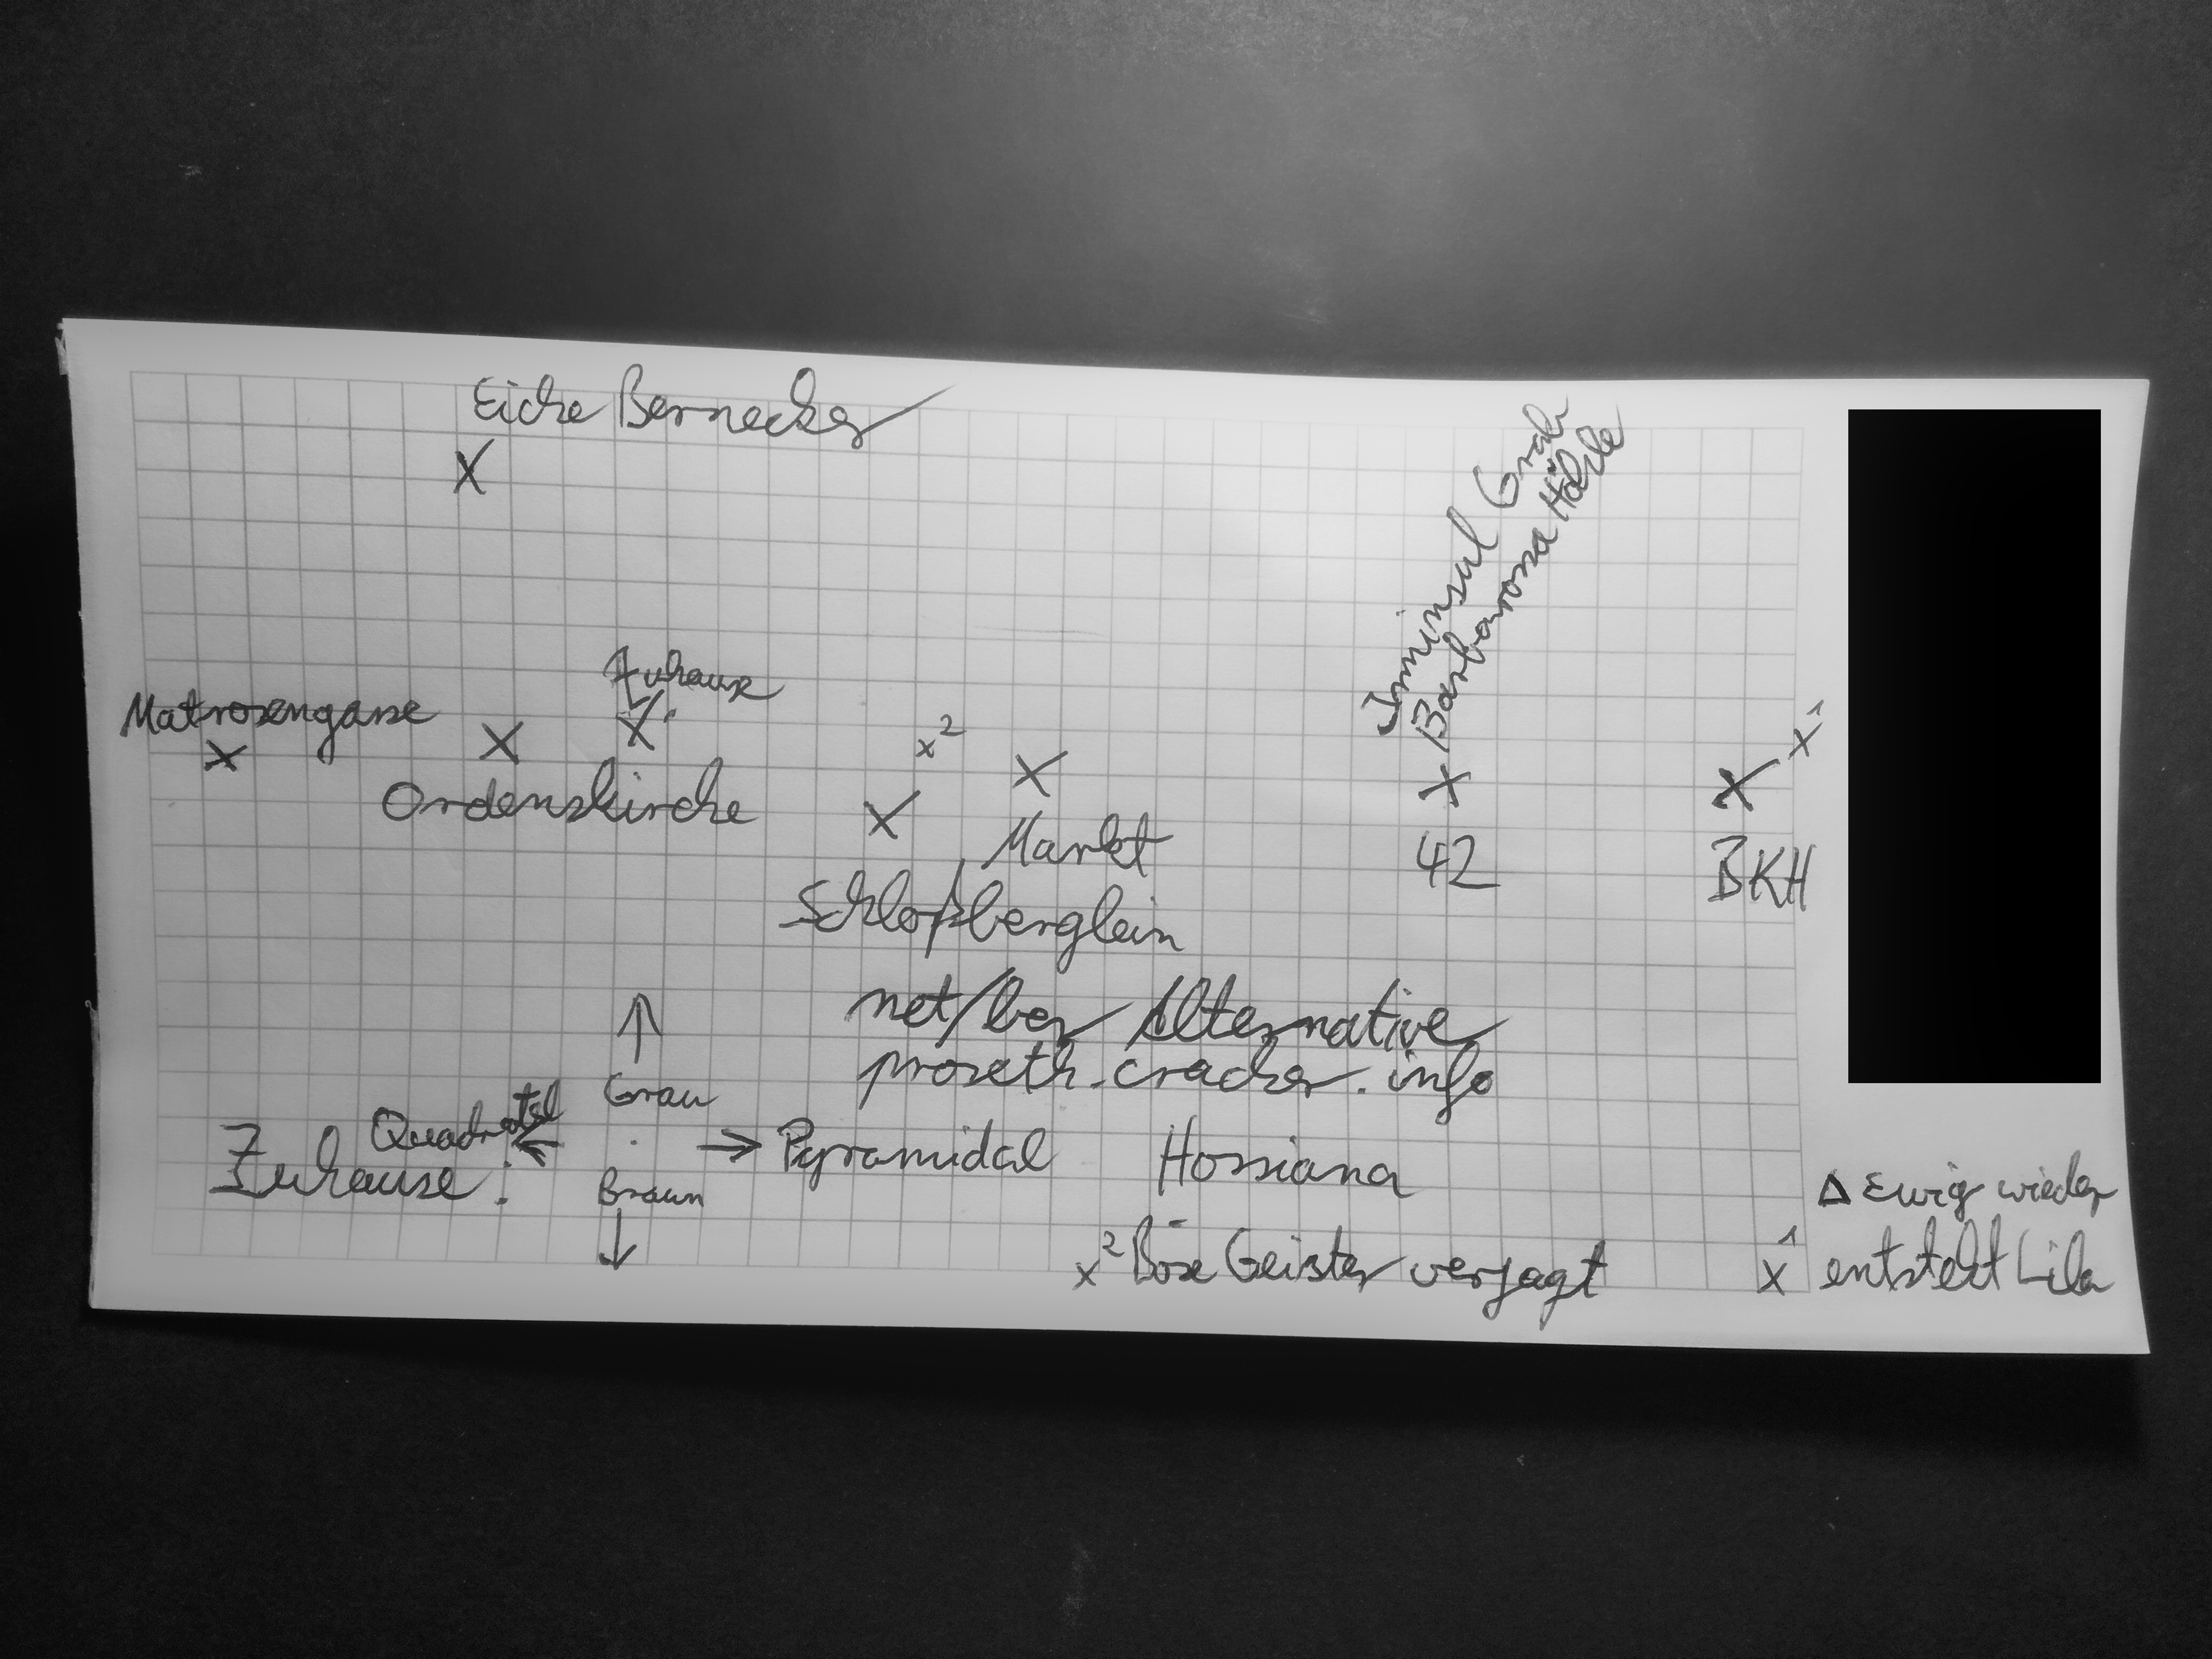 Eiche Bernecker
X
Irminsul Grab
Barbarossa Höhle
Zuhause
X
Matrosengasse
X
X
Ordenskirche
x²
X
X
Markt
Schloßberglein
X
42
X
x¹
BKH
net/ber Alternative
proseth.cracker.info
↑
Grau
Quadratal
←
·
→ Pyramidal
Zuhause:
Braun
↓
Hossiana
x² Böse Geister verjagt
Δ Ewig wieder
x¹ entsteht Lila